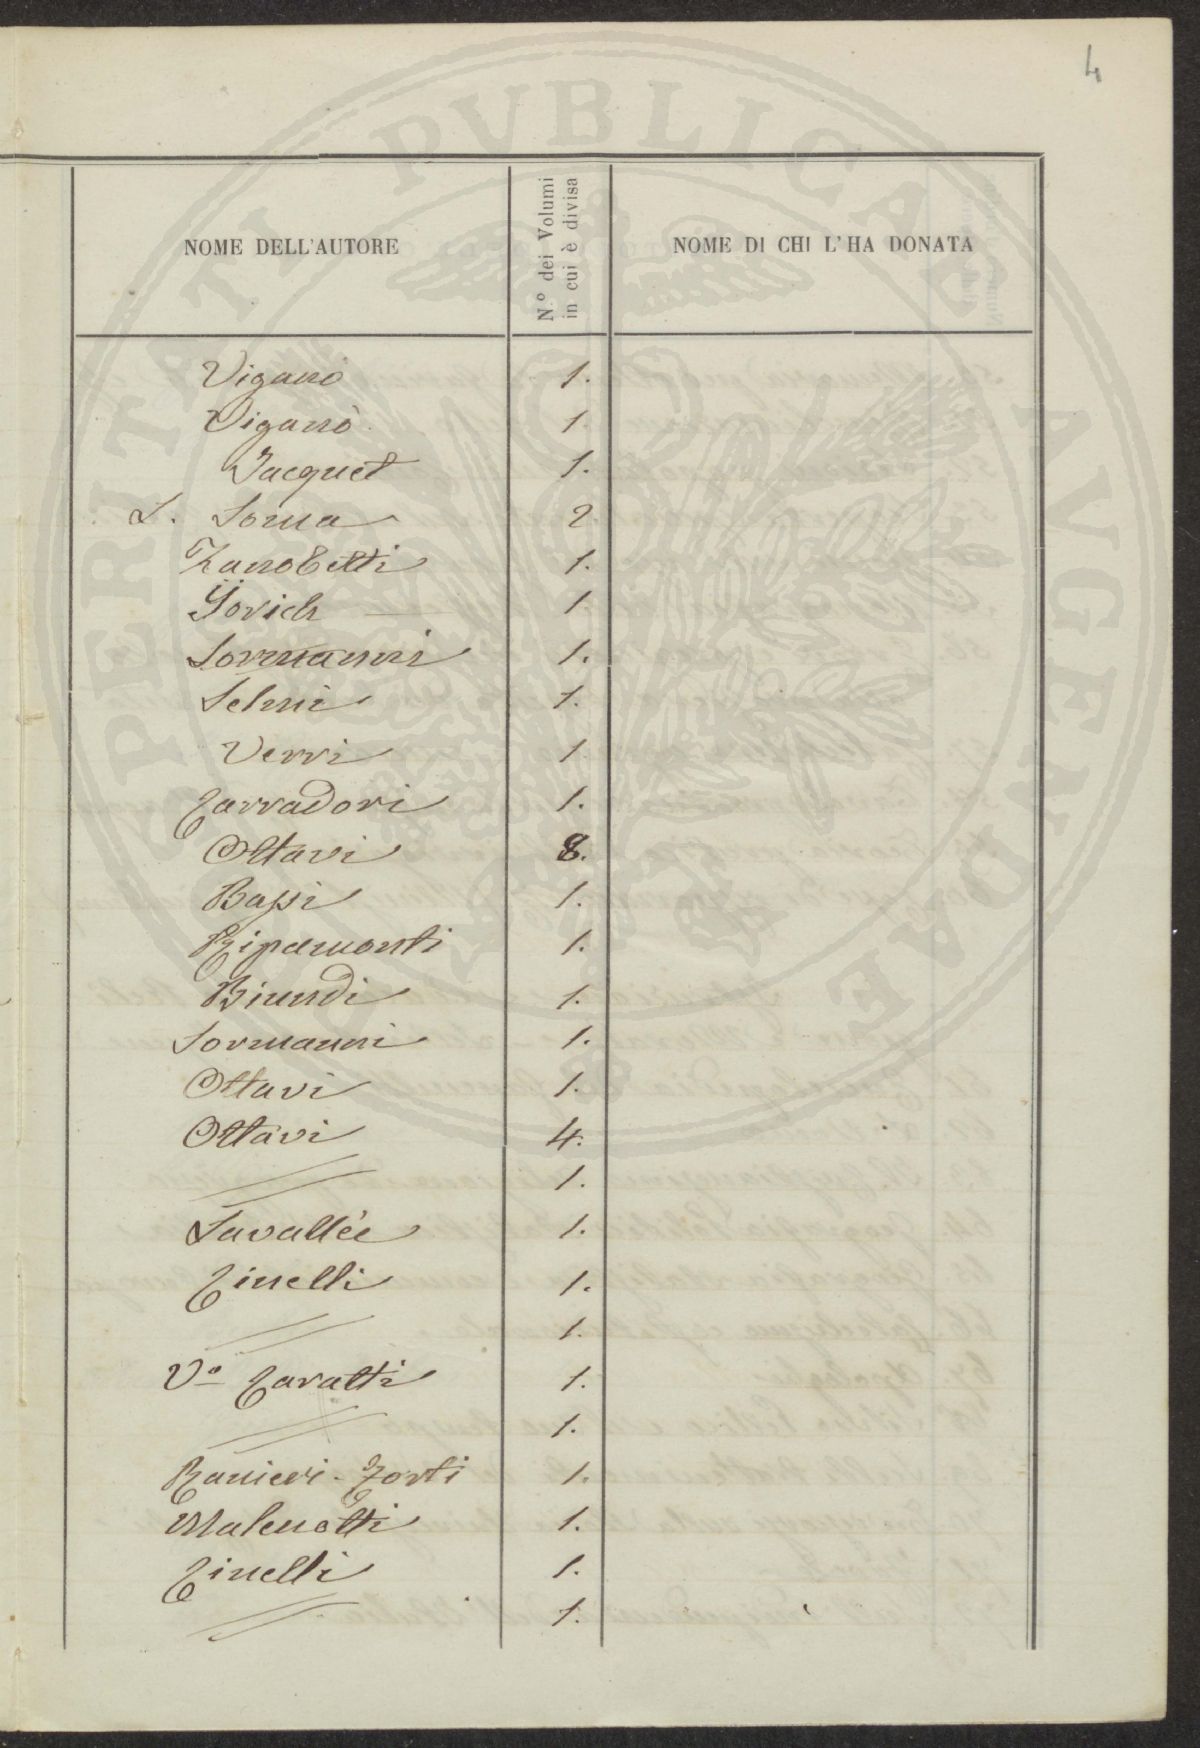 4
NOME DELL'AUTORE
N.º dei Volumi
in cui è divisa
NOME DI CHI L'HA DONATA
Viganò 1.
Viganò 1.
Jacquet 1.
S. Soma 2
Zanobetti 1.
Yorich 1
Sormanni 1.
Selmi 1.
Verri 1
Carradori 1.
Ottavi 8.
Bassi 1.
Ripamonti 1.
Biundi 1.
Sormanni 1.
Ottavi 1.
Ottavi 4.
1.
Lavallée 1.
Cinelli 1.
1.
Vº Caratti 1.
1.
Ranieri - Zorti 1.
Malenotti 1.
Cinelli 1.
1.
PROSPERITATI PVBLICAE AVGENDAE